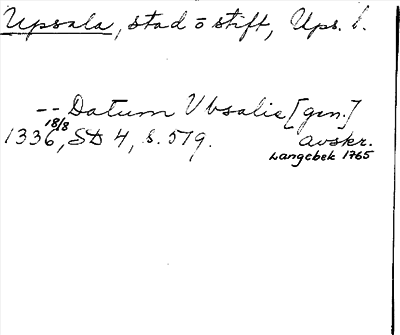 Upsala, stad o stift, Ups. l.
-- Datum Vbsalie [gen.]
18/8
1336, SD 4, s. 579. avskr.
Langebek 1765